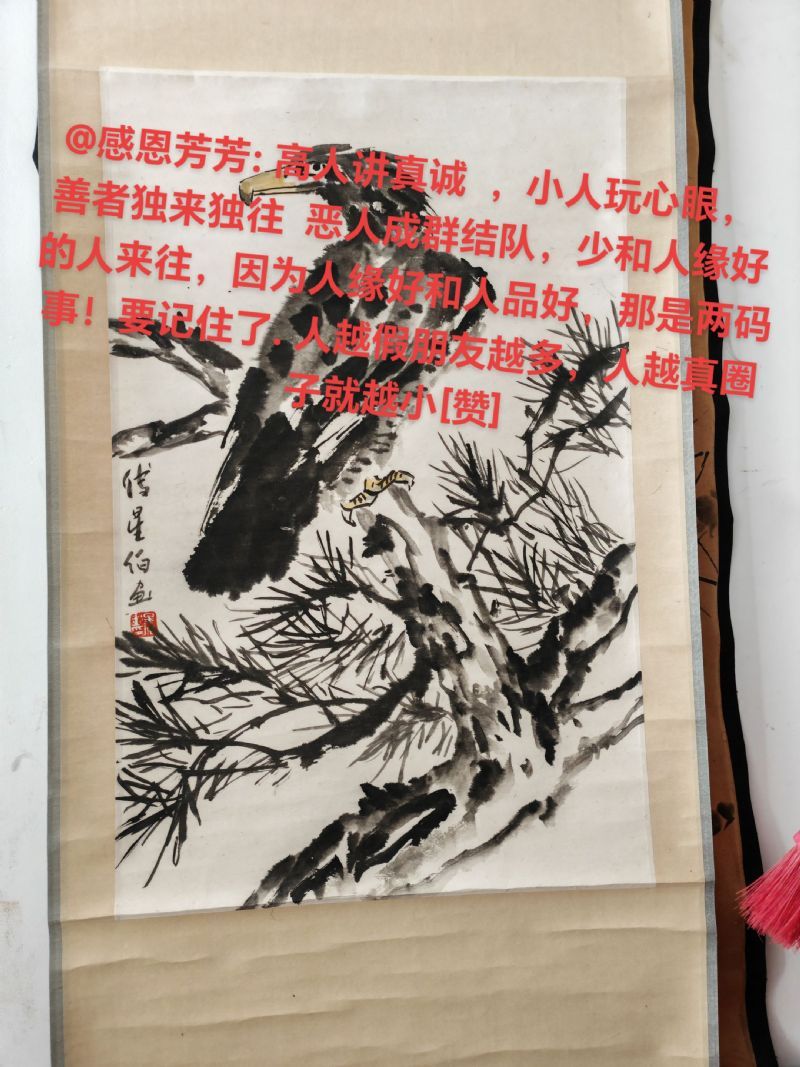 @感恩芳芳: 高人讲真诚 ，小人玩心眼，
善者独来独往 恶人成群结队，少和人缘好
的人来往，因为人缘好和人品好，那是两码
事！要记住了. 人越假朋友越多，人越真圈
子就越小[赞]
星伯画